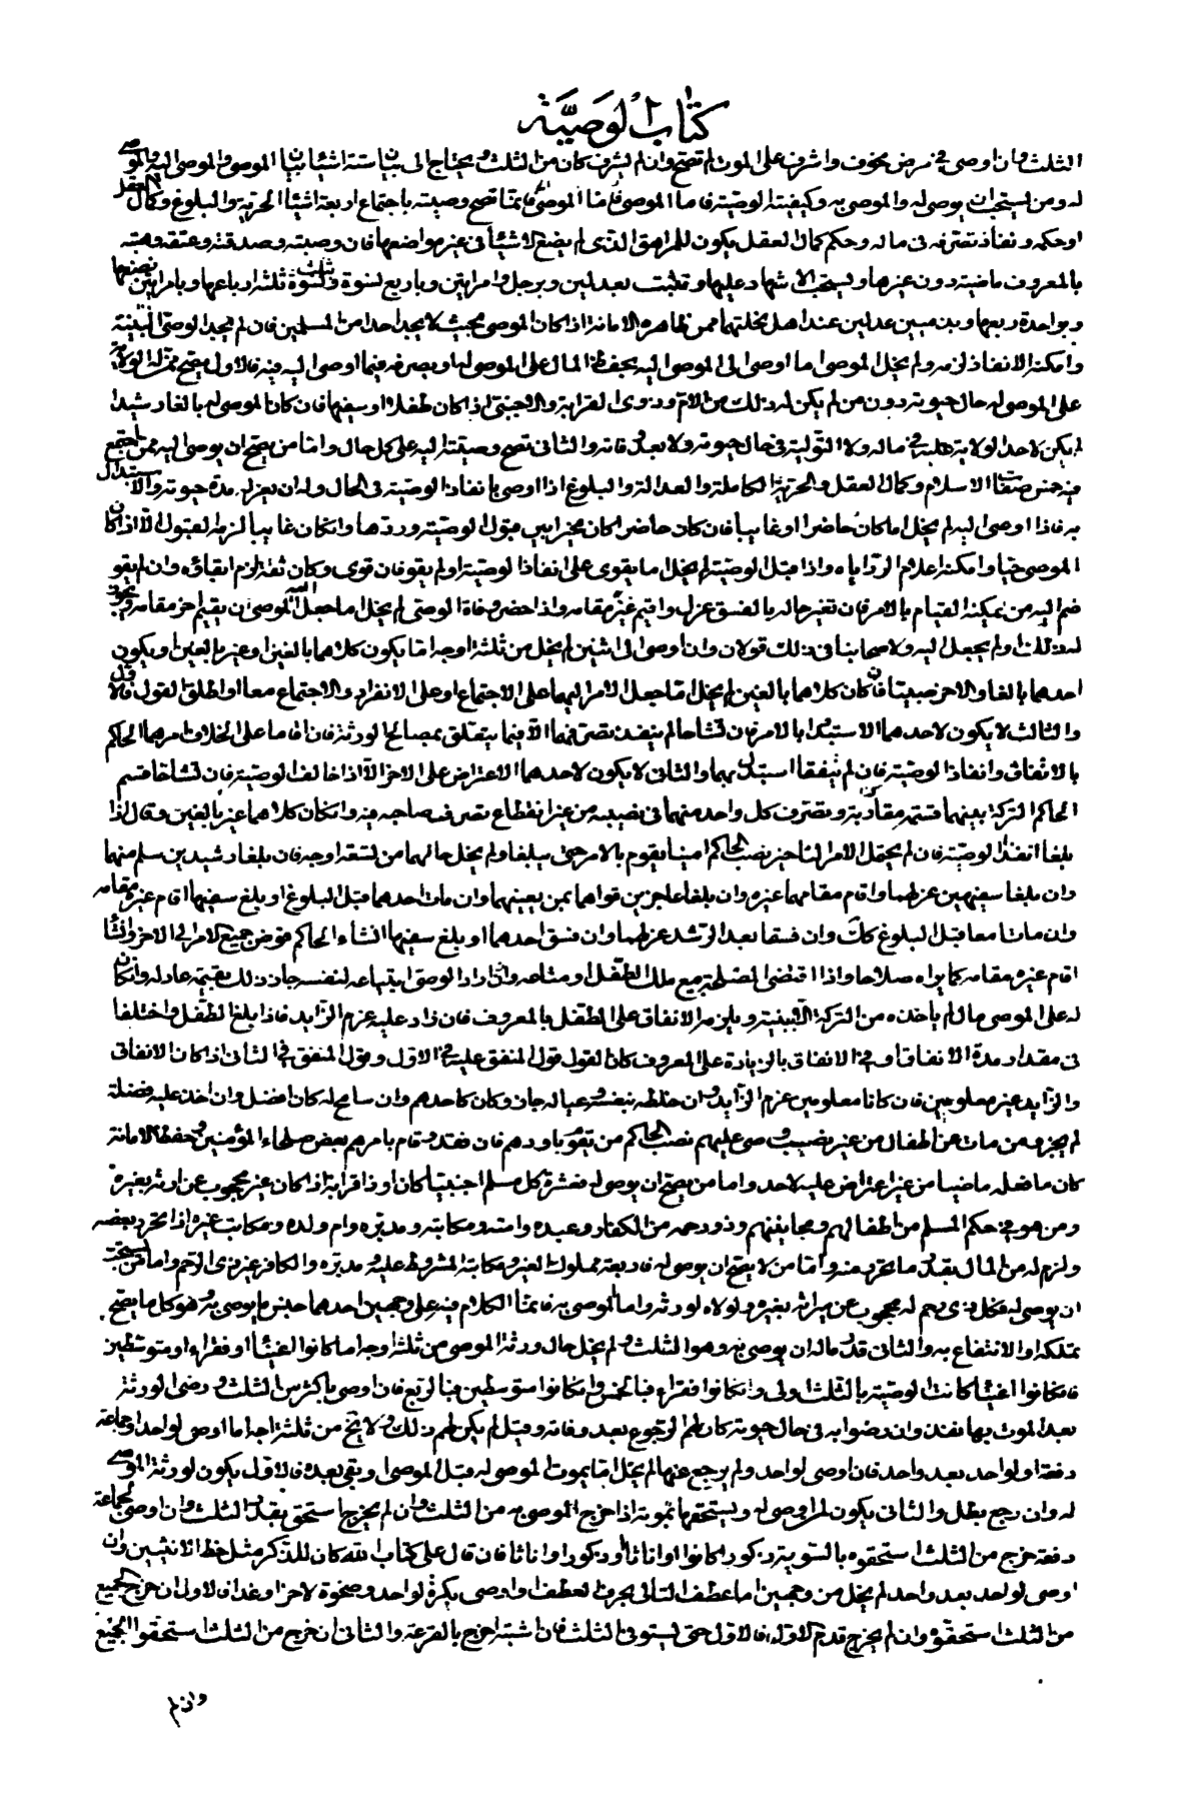 كتاب الوصية
الثلث فان اوصى في مرض مخوف واشرف على الموت لم تصح وان لم يشرف كان من الثلث ويحتاج الى بيان ستة اشياء بيان الموصي والموصى اليه والموصى
له ومن يستحب ان يوصى له والموصى به وكيفية الوصية فاما الموصي فانما تصح وصيته باجتماع اربعة اشياء الحرية والبلوغ وكمال العقل
او حكمه ونفاذ تصرفه في ماله وحكم كمال العقل يكون للمراهق الذى لم يضع الاشياء في غير مواضعها فان وصيته وصدقته وعتقه وهبته
بالمعروف ماضية دون غيرها ويستحب الاشهاد عليها وتثبت بعدلين وبرجل وامراتين وباربع نسوة وبثلث نسوة ثلثة ارباعها وبامراتين نصفها
وبواحدة ربعها وبذميين عدلين عند اهل نحلتهما ممن ظاهره الامانة اذا كان الموصي بحيث لا يجد احدا من المسلمين فان لم يجد الوصي البينة
وامكنه الانفاذ لزمه ولم يخل الموصي اما اوصى الى الموصى اليه بحفظ المال على الموصى له او بصرفه فيما اوصى اليه فيه فالاول يصح ممن له الولاية
على الموصى له حال حيوته دون من لم يكن له ذلك من الام وذوى القرابة والاجنبي اذا كان طفلا او سفيها فان كان الموصى له بالغا رشيدا
لم يكن لاحد الولاية عليه في ماله ولا التولية في حال حيوته ولا بعد وفاته والثاني تصح وصيته اليه على كل حال واما من يصح ان يوصى اليه ممن اجتمع
فيه خمس صفات الاسلام وكمال العقل والحرية الكاملة والعدالة والبلوغ اذا اوصى بانفاذ الوصية في الحال وله ان يعزله مدة حيوته والاستبدال
به فاذا اوصى اليه لم يخل اما كان حاضرا او غايبا فان كان حاضرا كان مخيرا بين قبول الوصية وردها وان كان غايبا لزمه القبول الا اذا كان
الموصي حيا وامكنه اعلام الرد اياه واذا قبل الوصية لم يخل اما يقوى على انفاذ الوصية او لم يقو فان قوى وكان ثقة لزم ابقاؤه وان لم يقو
ضم اليه من يمكنه القيام بالامر فان تغير حاله بالفسق عزل واقيم غيره مقامه واذا حضر وفاة الوصي لم يخل اما جعل اليه الموصي ان يقيم اخر مقامه ويجوز
له ذلك او لم يجعل اليه ولاصحابنا في ذلك قولان وان اوصى الى اثنين لم يخل من ثلثة اوجه اما يكون كلاهما بالغين او غير بالغين او يكون
احدهما بالغا والاخر صبيا فان كان كلاهما بالغين لم يخل اما جعل الامر اليهما على الاجتماع او على الانفراد والاجتماع معا او اطلق القول فالاول
والثالث لا يكون لاحدهما الاستبداد بالامر فان تشاحا لم ينفذ تصرفهما الا فيما يتعلق بمصالح الورثة فان اقاما على الخلاف امرهما الحاكم
بالاتفاق وانفاذ الوصية فان لم يتفقا استبدل بهما والثاني لا يكون لاحدهما الاعتراض على الاخر الا اذا خالف الوصية فان تشاحا قسم
الحاكم التركة بينهما قسمة مقاربة وتصرف كل واحد منهما في نصيبه من غير انقطاع تصرف صاحبه فيه وان كان كلاهما غير بالغين وقال اذا
بلغا انفذا الوصية فان لم يحتمل الامر التاخير نصب الحاكم امينا يقوم بالامر حتى يبلغا ولم يخل حالهما من تسعة اوجه فان بلغا رشيدين سلم منهما
وان بلغا سفيهين عزلهما واقام مقامهما غيره وان بلغا عاجزين قواهما بمن يعينهما وان مات احدهما قبل البلوغ او بلغ سفيها اقام غيره مقامه
وان ماتا معا قبل البلوغ كذلك وان فسقا بعد الرشد عزلهما وان فسق احدهما او بلغ سفيها انشاء الحاكم فوض جميع الامر الى الاخر وان شاء
اقام غيره مقامه كما يراه صلاحا واذا اقتضى المصلحة بيع ملك الطفل او متاعه واذا اراد الوصي ابتياعه لنفسه جاز ذلك بقيمة عادلة وان كان
له على الموصي مال لم ياخذه من التركة الا ببينة ويلزمه الانفاق على الطفل بالمعروف فان زاد عليه غرم الزايد فاذا بلغ الطفل واختلفا
في مقدار مدة الانفاق او في الانفاق بالزيادة على المعروف كان القول قول المنفق عليه في الاول وقول المنفق في الثاني اذا كان الانفاق
والزايد غير معلومين فان كانا معلومين غرم الزايد وان خلطه بنفسه وعياله جاز وكان كاحدهم وان سامح له كان افضل وان اخذ عليه فضلة
لم يجز ومن مات عن اطفال من غير نصب وصي عليهم نصب الحاكم من يقوم باودهم فان فقد وقام بامرهم بعض صلحاء المؤمنين وحفظ الامانة
كان ما فعله ماضيا من غير اعتراض عليه لاحد واما من يصح ان يوصى له فعشرة كل مسلم اجنبيا كان او ذا قرابة اذا كان غير محجوب عن ارثه بغيره
ومن هو في حكم المسلم من اطفالهم ومجانينهم وذو رحمه من الكفار وعبده وامته ومكاتبه ومدبره وام ولده ومكاتب غيره اذا تحرر بعضه
ولزم له من المال بقدر ما تحرر منه واما من لا يصح ان يوصى له فاربعة مملوك الغير ومكاتبه المشروط عليه ومدبره والكافر غير ذى الرحم واما من يستحب
ان يوصى له فكل ذى رحم له محجوب عن ميراثه بغيره ولولاه لورثه واما الموصى به فانما الكلام فيه على وجهين احدهما جنس ما يوصى به وهو كل ما يصح
تملكه او الانتفاع به والثاني قدر ماله ان يوصى به وهو الثلث ولم يخل حال ورثة الموصي من ثلثة اوجه اما كانوا اغنياء او فقراء او متوسطين
فان كانوا اغنياء كانت الوصية بالثلث اولى وان كانوا فقراء فبالخمس وان كانوا متوسطين فبالربع فان اوصى باكثر من الثلث ورضى الورثة
بعد الموت بها نفذ وان رضوا به في حال حيوته كان لهم الرجوع بعد وفاته وقيل لم يكن لهم ذلك ولا يخ من ثلثة اوجه اما اوصى لواحد او جماعة
دفعة او لواحد بعد واحد فان اوصى لواحد ولم يرجع عنها لم يخل اما يموت الموصى له قبل الموصي او بقي بعده فالاول يكون لورثة الموصى
له وان رجع بطل والثاني يكون لمن اوصى له ويستحقها بموته اذا خرج الموصى به من الثلث وان لم يخرج استحق بقدر الثلث وان اوصى لجماعة
دفعة خرج من الثلث استحقوه بالسوية ذكورا كانوا او اناثا او ذكورا واناثا فان قال على كتاب الله كان للذكر مثل حظ الانثيين وان
اوصى لواحد بعد واحد لم يخل من وجهين اما عطف الثاني بحرف العطف او اوصى بكرة لواحد وضحوة لاخر او غدا فالاول ان خرج الجميع
من الثلث استحقوه وان لم يخرج قدم الاول فالاول حتى يستوفي الثلث فان اشتبه اخرج بالقرعة والثاني ان خرج من الثلث استحقوا الجميع
وان لم